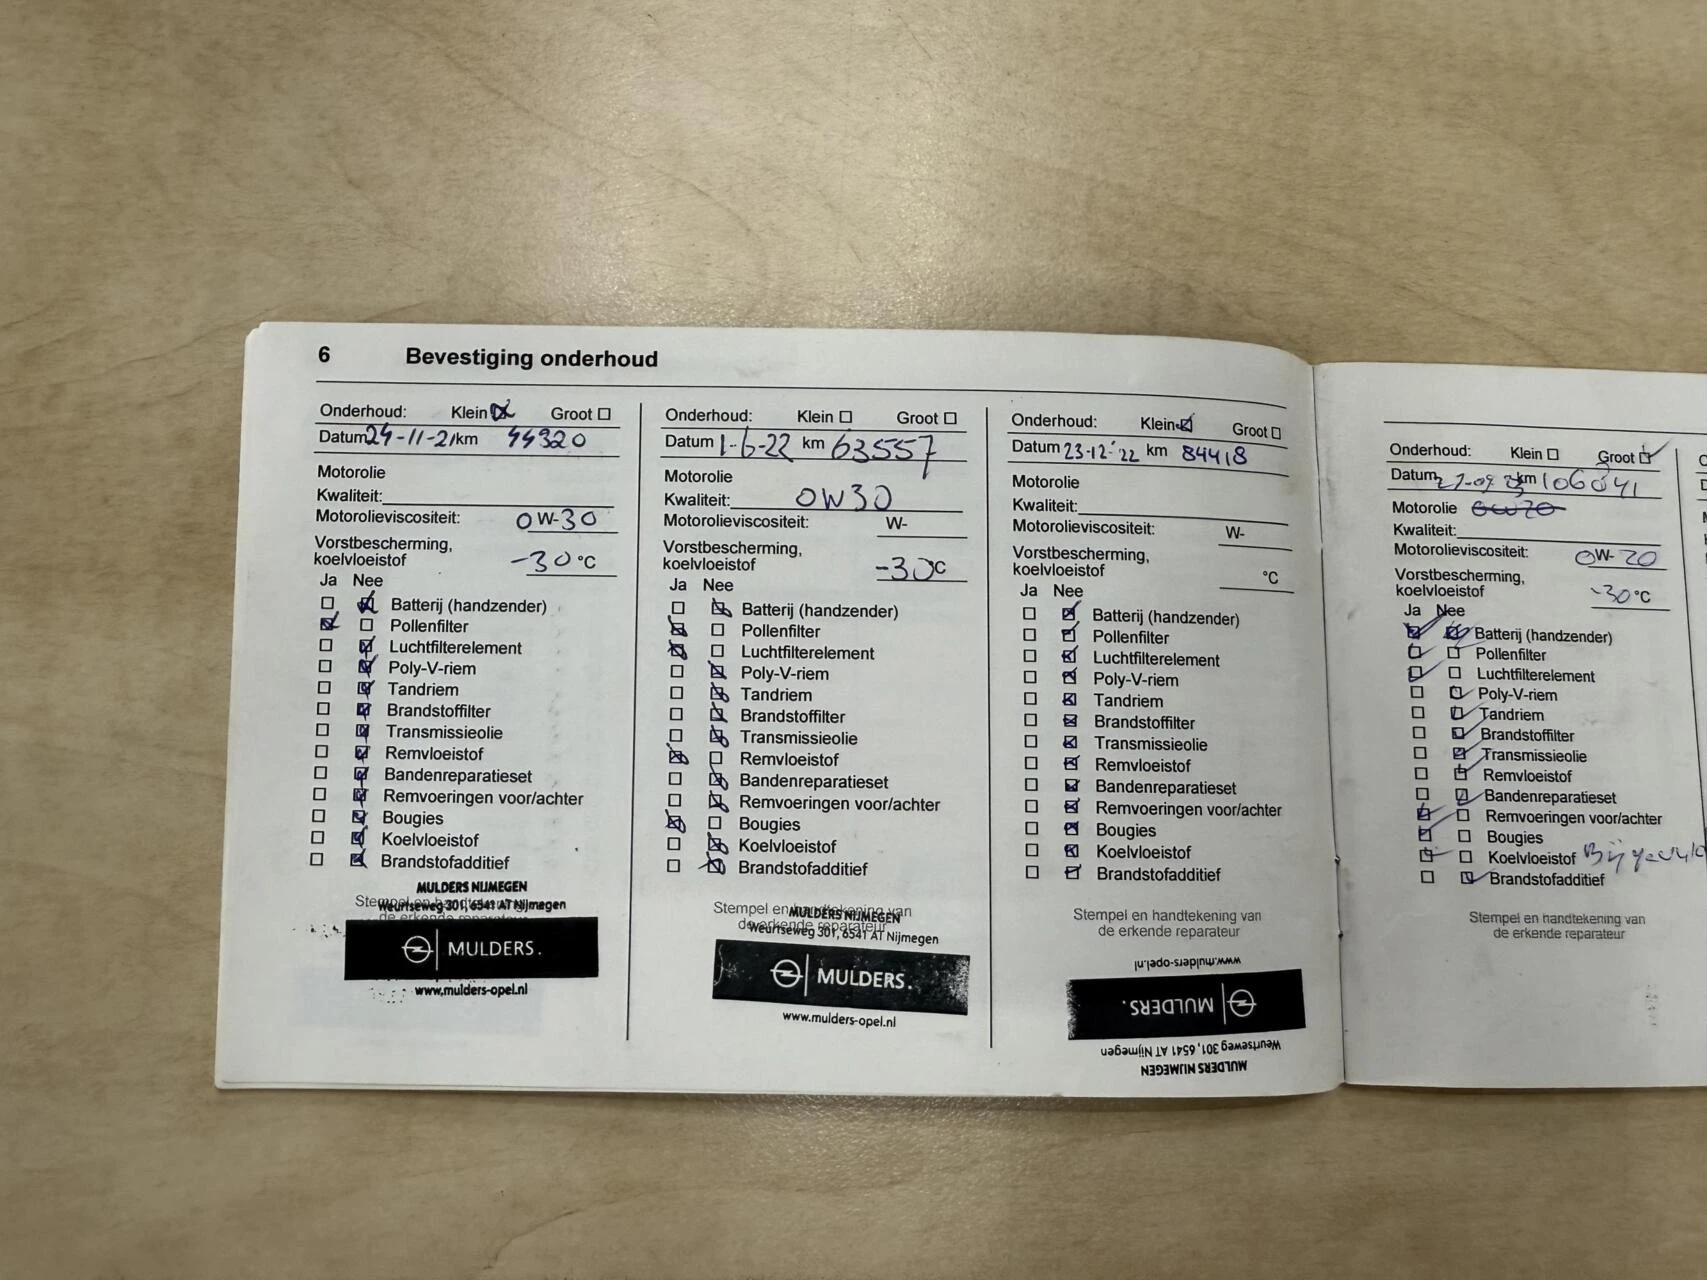 6 Bevestiging onderhoud
Onderhoud: Klein Groot
Datum 24-11-21 km 44320
Motorolie
Kwaliteit:
Motorolieviscositeit: 0W-30
Vorstbescherming,
koelvloeistof -30 °C
Ja Nee
Batterij (handzender)
Pollenfilter
Luchtfilterelement
Poly-V-riem
Tandriem
Brandstoffilter
Transmissieolie
Remvloeistof
Bandenreparatieset
Remvoeringen voor/achter
Bougies
Koelvloeistof
Brandstofadditief
MULDERS NIJMEGEN
Weurtseweg 301, 6541 AT Nijmegen
MULDERS.
www.mulders-opel.nl
Onderhoud: Klein Groot
Datum 1-6-22 km 63557
Motorolie
Kwaliteit: 0W30
Motorolieviscositeit: W-
Vorstbescherming,
koelvloeistof -30°C
Ja Nee
Batterij (handzender)
Pollenfilter
Luchtfilterelement
Poly-V-riem
Tandriem
Brandstoffilter
Transmissieolie
Remvloeistof
Bandenreparatieset
Remvoeringen voor/achter
Bougies
Koelvloeistof
Brandstofadditief
Stempel en handtekening van
de erkende reparateur
MULDERS NIJMEGEN
Weurtseweg 301, 6541 AT Nijmegen
MULDERS.
www.mulders-opel.nl
Onderhoud: Klein Groot
Datum 23-12-'22 km 84418
Motorolie
Kwaliteit:
Motorolieviscositeit: W-
Vorstbescherming,
koelvloeistof °C
Ja Nee
Batterij (handzender)
Pollenfilter
Luchtfilterelement
Poly-V-riem
Tandriem
Brandstoffilter
Transmissieolie
Remvloeistof
Bandenreparatieset
Remvoeringen voor/achter
Bougies
Koelvloeistof
Brandstofadditief
Stempel en handtekening van
de erkende reparateur
MULDERS NIJMEGEN
Weurtseweg 301, 6541 AT Nijmegen
MULDERS.
www.mulders-opel.nl
Onderhoud: Klein Groot
Datum km 106041
Motorolie
Kwaliteit:
Motorolieviscositeit: 0W-20
Vorstbescherming,
koelvloeistof -30°C
Ja Nee
Batterij (handzender)
Pollenfilter
Luchtfilterelement
Poly-V-riem
Tandriem
Brandstoffilter
Transmissieolie
Remvloeistof
Bandenreparatieset
Remvoeringen voor/achter
Bougies
Koelvloeistof
Brandstofadditief
Stempel en handtekening van
de erkende reparateur